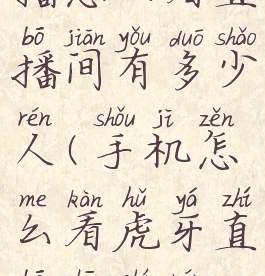 bō jiān yǒu duō shǎo
播间有多少
rén shǒu jī zěn
人(手机怎
me kàn hǔ yá zhí
么看虎牙直